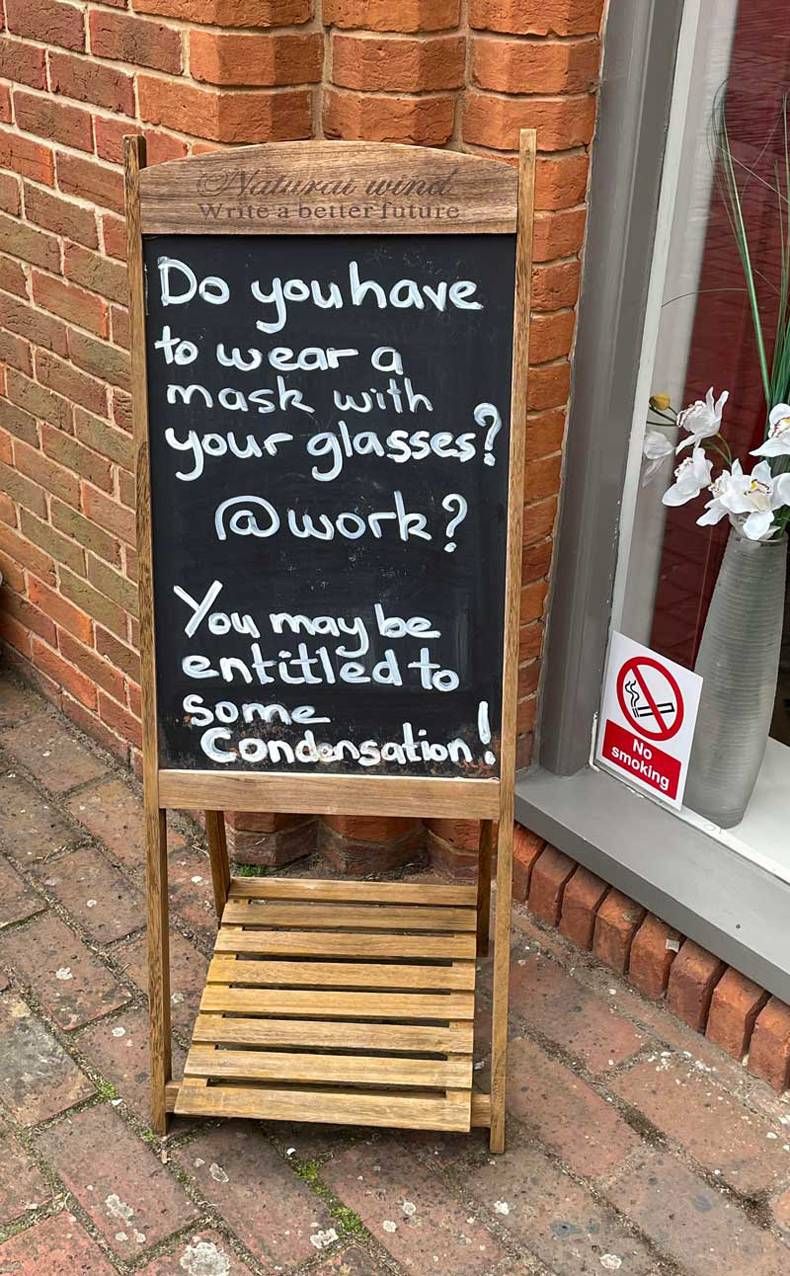 Natural wind
Write a better future
Do you have
to wear a
mask with
your glasses?
@work?
You may be
entitled to
some
Condensation!
No
smoking